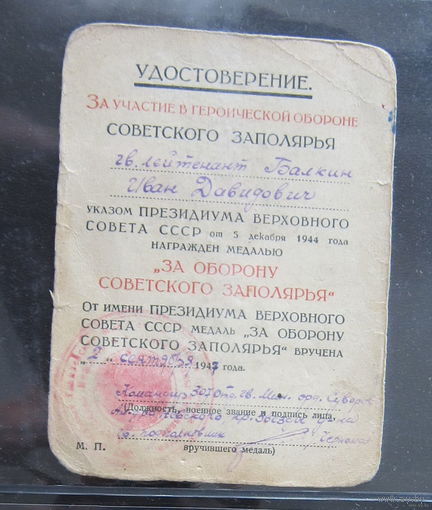 УДОСТОВЕРЕНИЕ.
ЗА УЧАСТИЕ В ГЕРОИЧЕСКОЙ ОБОРОНЕ
СОВЕТСКОГО ЗАПОЛЯРЬЯ
гв. лейтенант Балкин
Иван Давидович
УКАЗОМ ПРЕЗИДИУМА ВЕРХОВНОГО
СОВЕТА СССР от 5 декабря 1944 года
НАГРАЖДЕН МЕДАЛЬЮ
„ЗА ОБОРОНУ
СОВЕТСКОГО ЗАПОЛЯРЬЯ“
От имени ПРЕЗИДИУМА ВЕРХОВНОГО
СОВЕТА СССР МЕДАЛЬ „ЗА ОБОРОНУ
СОВЕТСКОГО ЗАПОЛЯРЬЯ“ ВРУЧЕНА
„2“ сентября 1947 года.
Командир гв. Мин. орд.
(Должность, военное звание и подпись лица,
М. П. вручившего медаль)